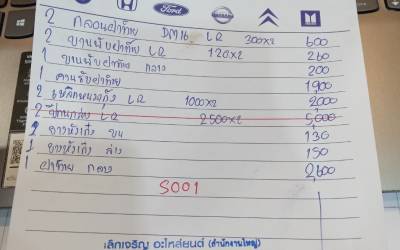 Ford
NISSAN
2 กลอนฝาท้าย DM16 LR 300x2 600
2 ขานพับฝาท้าย LR 120x2 260
1 ขานพับฝาท้าย กลาง 200
1 คานรับฝาท้าย 1,900
2 เหล็กหนวดกุ้ง LR 1000x2 2,000
2 LR 2500x2 5,000
1 ยางหัวเก๋ง บน 130
1 ยางหัวเก๋ง ล่าง 150
1 ฝาท้าย กลาง 2,600
S001
เลิกเจริญ อะไหล่ยนต์ (สำนักงานใหญ่)